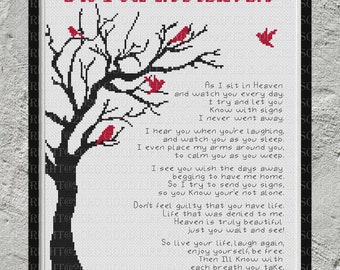 As I sit in Heaven
and watch you every day
I try and let you
Know with signs
I never went away.
I hear you when you're laughing,
and watch you as you sleep.
I even place my arms around you,
to calm you as you weep.
I see you wish the days away
begging to have me home.
So I try to send you signs,
so you Know you're not alone.
Don't feel guilty that you have life.
Life that was denied to me.
Heaven is truly beautiful
just you wait and see!
So live your life, laugh again,
enjoy yourself, be free.
Then I'll Know with
each breath you take